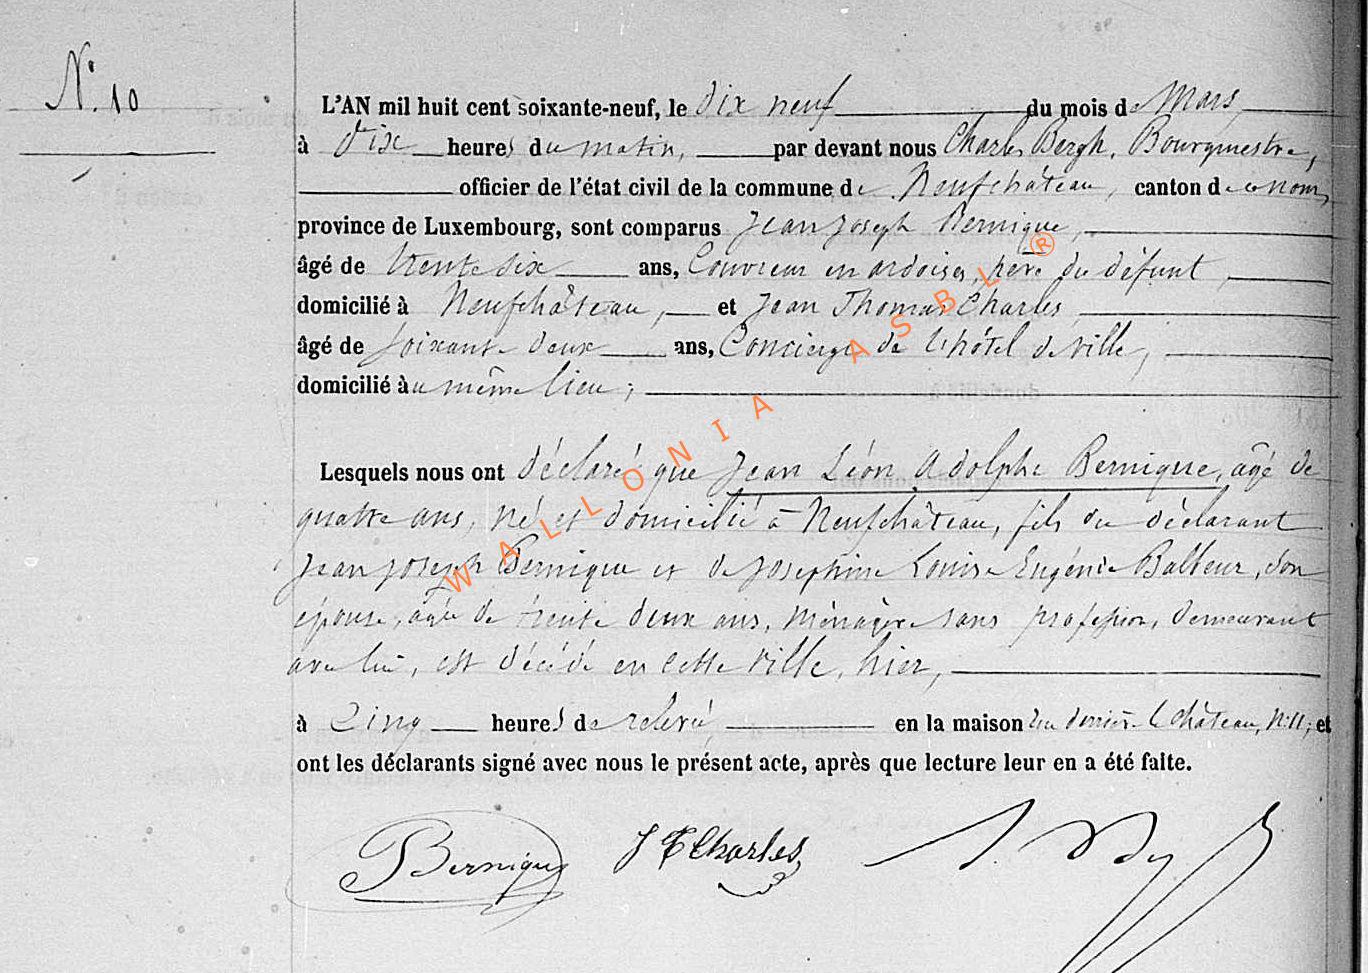 N° 10
L'AN mil huit cent soixante-neuf, le dix neuf du mois de Mars,
à dix heures du matin, par devant nous Charles Bergh, Bourgmestre,
officier de l'état civil de la commune de Neufchâteau, canton de ce nom,
province de Luxembourg, sont comparus Jean Joseph Bernique,
âgé de trente six ans, Couvreur en ardoises, père du défunt,
domicilié à Neufchâteau, et Jean Thomas Charles,
âgé de soixante deux ans, Concierge de l'hôtel de ville,
domicilié au même lieu;
Lesquels nous ont déclaré que Jean Léon Adolphe Bernique, âgé de
quatre ans, né et domicilié à Neufchâteau, fils du déclarant
Jean Joseph Bernique et de Josephine Louise Eugénie Balteur, son
épouse, âgée de trente deux ans, ménagère sans profession, demeurant
avec lui, est décédé en cette ville, hier,
à Cinq heures de relevé, en la maison rue derrière le château, N. 11; et
ont les déclarants signé avec nous le présent acte, après que lecture leur en a été faite.
Bernique J T Charles
WALLONIA ASBL ®